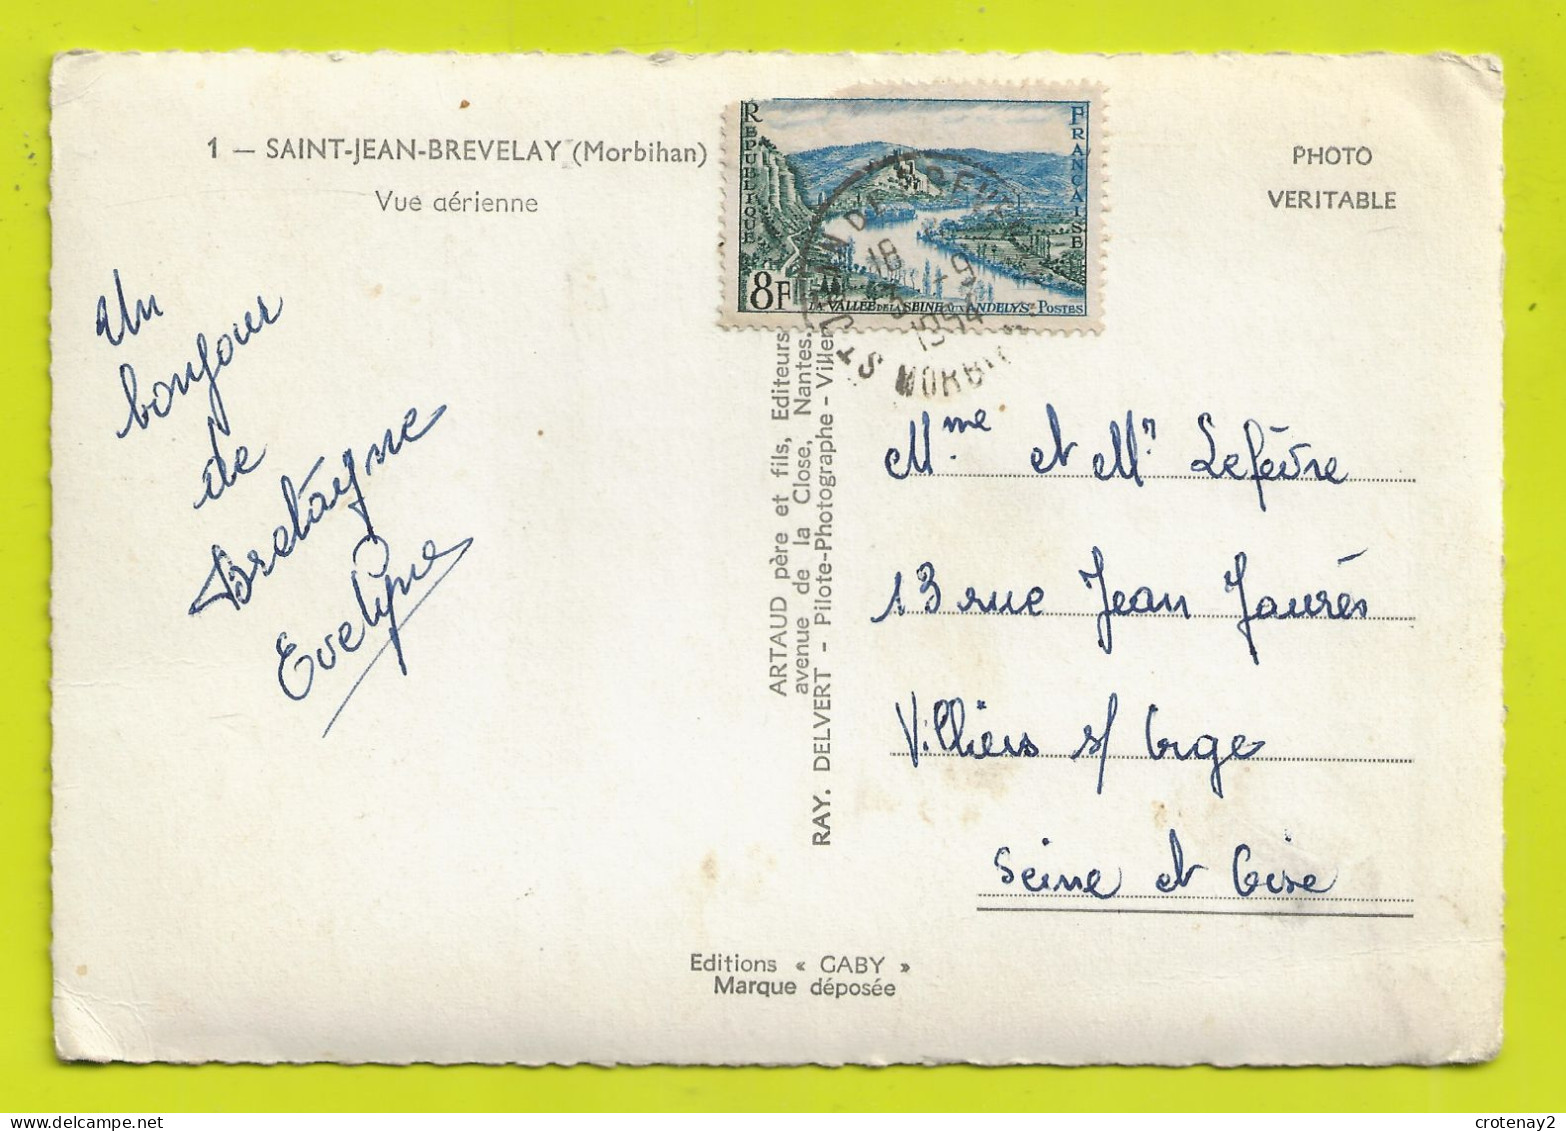 1 — SAINT-JEAN-BREVELAY (Morbihan)
Vue aérienne
PHOTO
VERITABLE
REPUBLIQUE
FRANÇAISE
8F
LA VALLÉE DE LA SEINE AUX ANDELYS. POSTES
ST JEAN DE BREVELAY
18
3 - 9
1954
MORBIHAN
Un
bonjour
de
Bretagne
Evelyne
ARTAUD père et fils, Editeurs
avenue de la Close, Nantes.
RAY. DELVERT - Pilote-Photographe - Viller
Mme et Mr Lefèvre
13 rue Jean Jaurés
Villiers s/ Orge
Seine et Oise
Editions « GABY »
Marque déposée
crotenay2